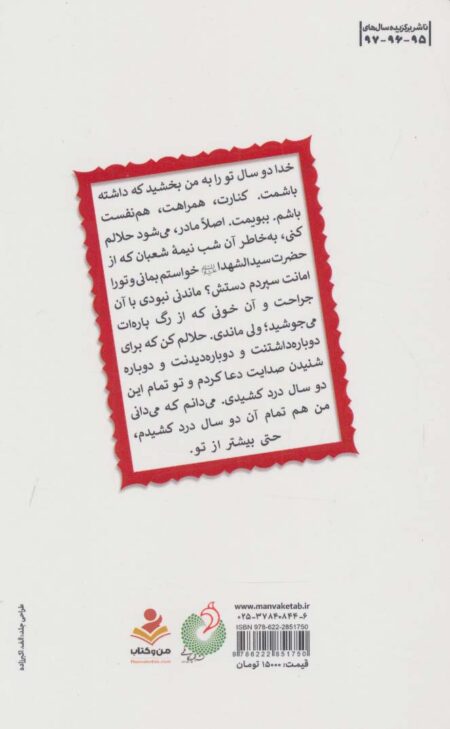 ناشر برگزیده سال‌های
۹۵-۹۶-۹۷
خدا دو سال تو را به من بخشید که داشته
باشمت. کنارت، همراهت، هم‌نفست
باشم. ببویمت. اصلاً مادر، می‌شود حلالم
کنی، به‌خاطر آن شب نیمهٔ شعبان که از
حضرت سیدالشهدا خواستم بمانی و تو را
امانت سپردم دستش؟ ماندنی نبودی با آن
جراحت و آن خونی که از رگ پاره‌ات
می‌جوشید؛ ولی ماندی. حلالم کن که برای
دوباره‌داشتنت و دوباره‌دیدنت و دوباره
شنیدن صدایت دعا کردم و تو تمام این
دو سال درد کشیدی. می‌دانم که می‌دانی
من هم تمام آن دو سال درد کشیدم،
حتی بیشتر از تو.
www.manvaketab.ir
۰۲۵-۳۷۸۴۰۸۴۴-۶
ISBN 978-622-2851750
9 786222 851750
قیمت: ۱۵۰۰۰ تومان
من و کتاب
Manvaketab.com
طراحی جلد: الف. اکبرزاده